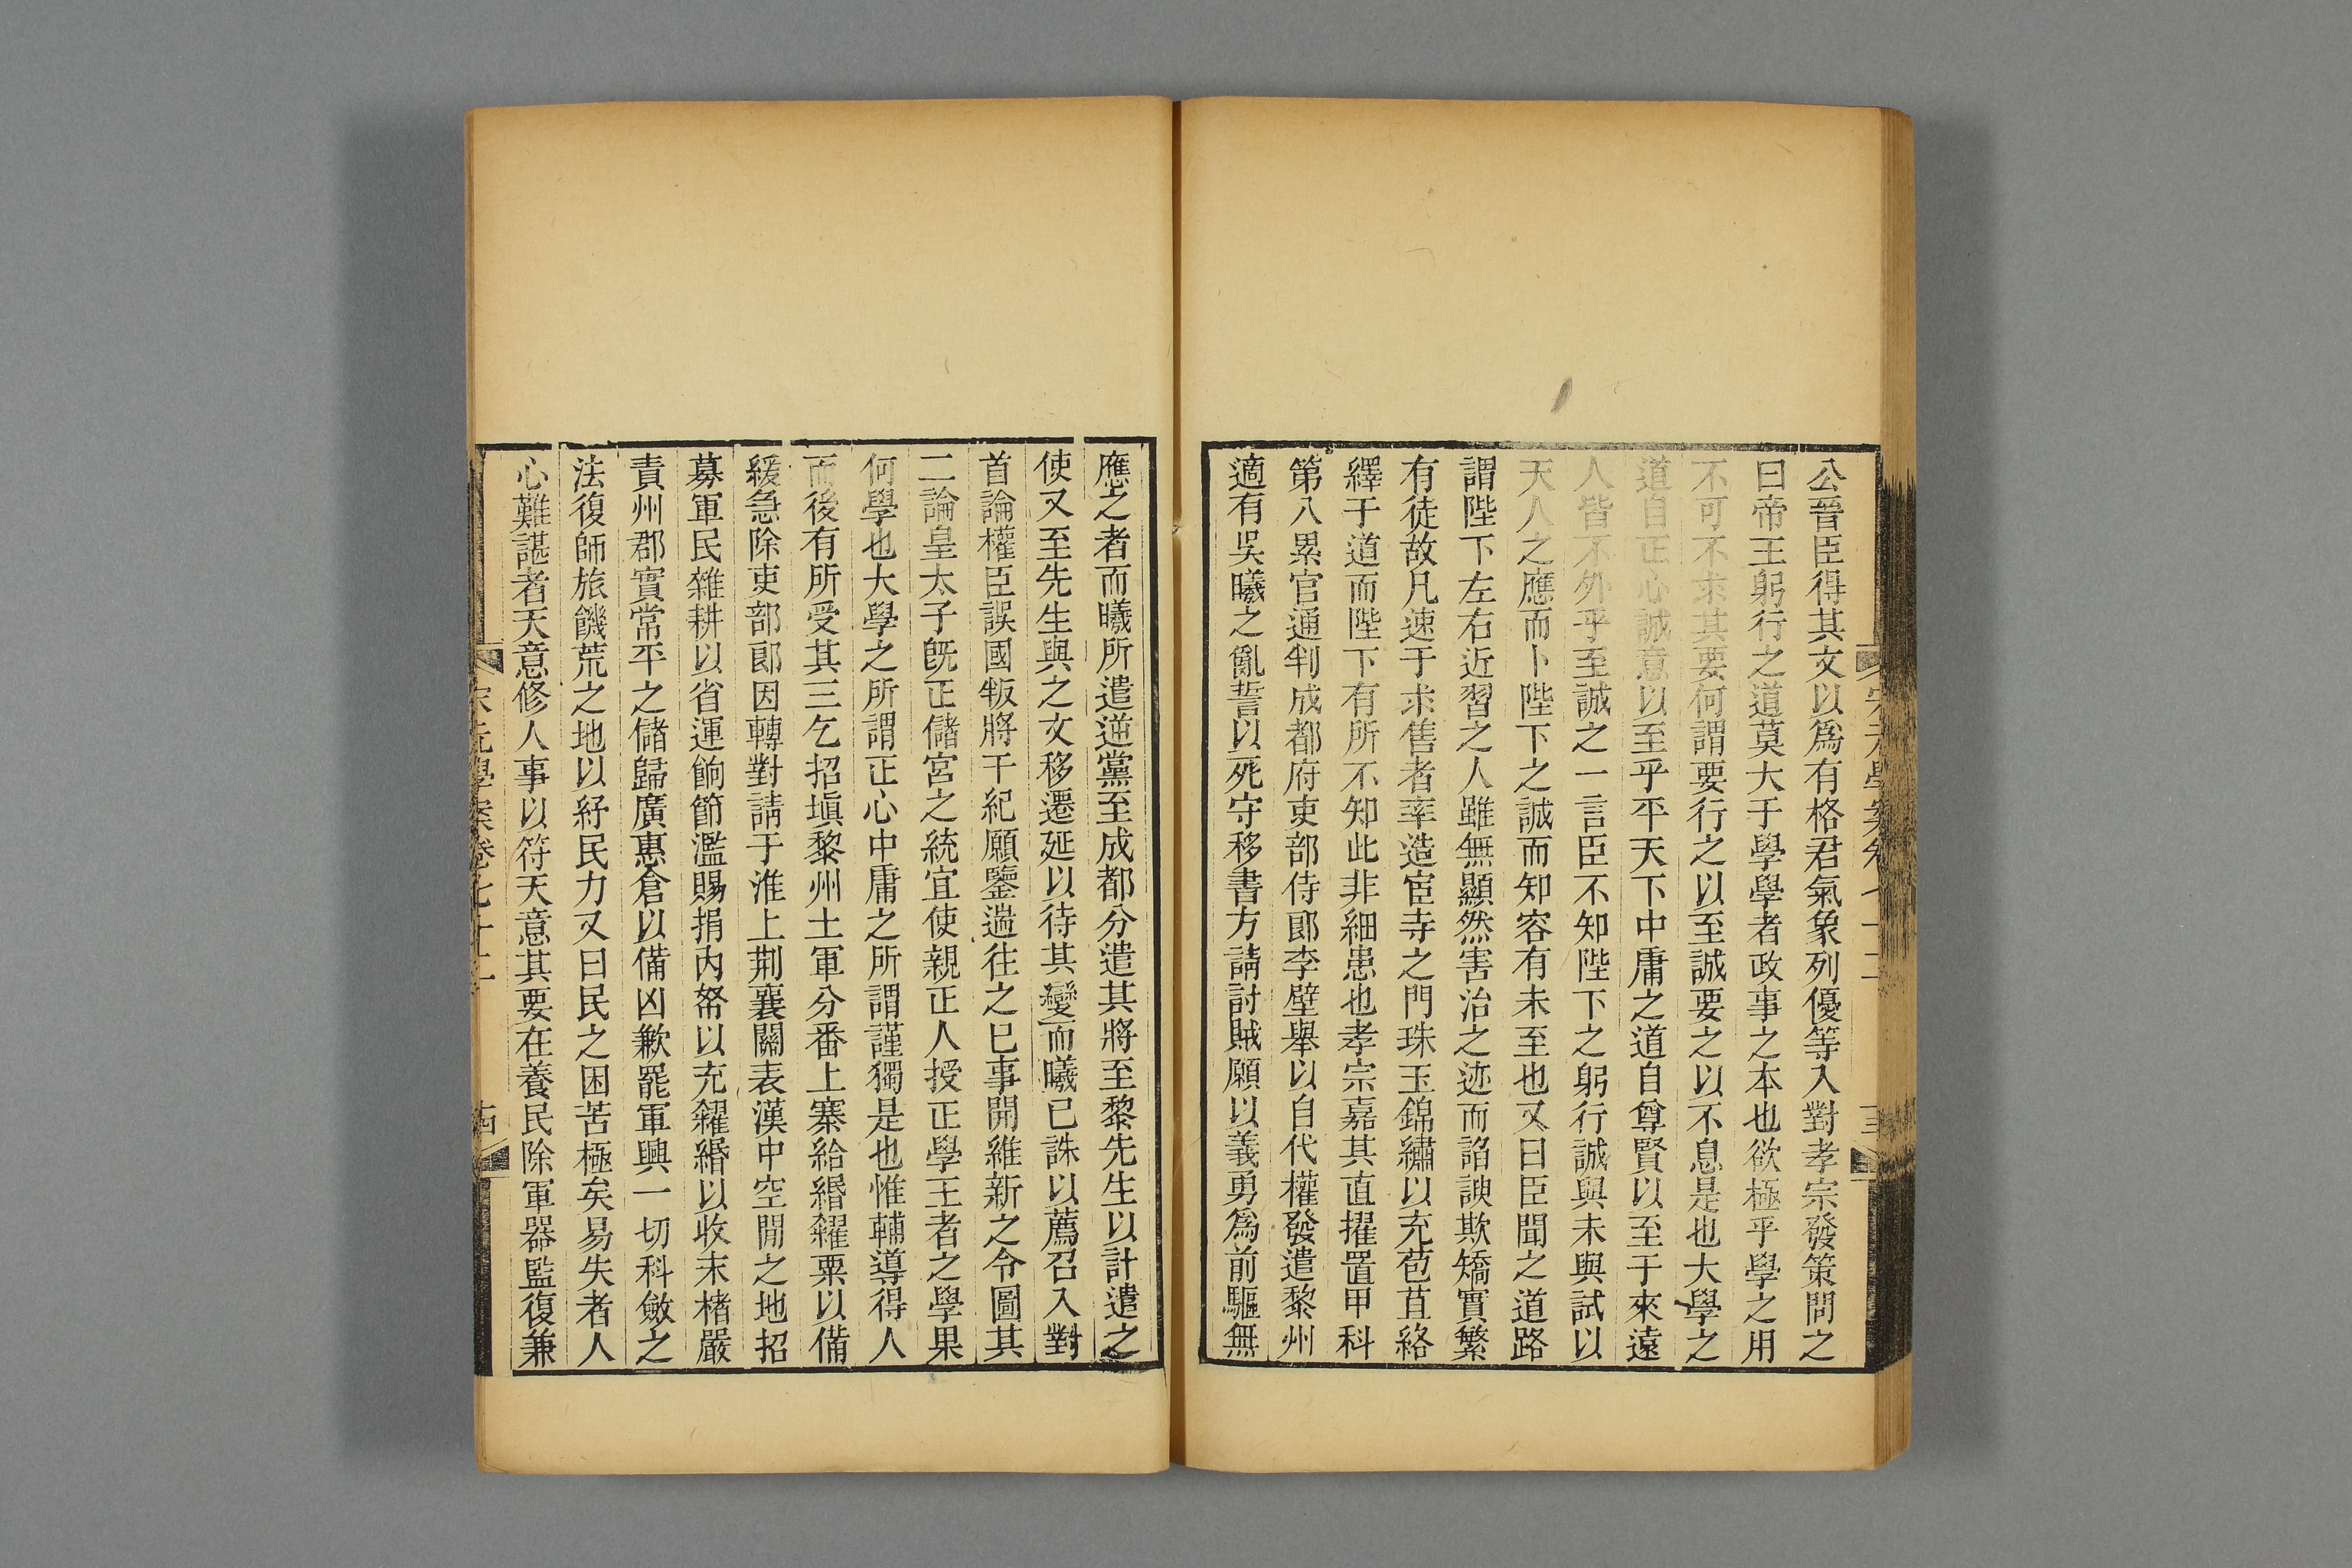 公晉臣得其文以爲有格君氣象列優等入對孝宗發策問之
曰帝王躬行之道莫大于學學者政事之本也欲極乎學之用
不可不求其要何謂要行之以至誠要之以不息是也大學之
道自正心誠意以至乎平天下中庸之道自尊賢以至于來遠
人皆不外乎至誠之一言臣不知陛下之躬行誠與未與試以
天人之應而卜陛下之誠而知容有未至也又曰臣聞之道路
謂陛下左右近習之人雖無顯然害治之迹而諂諛欺矯實繁
有徒故凡速于求售者率造宦寺之門珠玉錦繡以充苞苴絡
繹于道而陛下有所不知此非細患也孝宗嘉其直擢置甲科
第八累官通判成都府吏部侍郎李壁舉以自代權發遣黎州
適有吳曦之亂誓以死守移書方請討賊願以義勇爲前驅無
應之者而曦所遣逆黨至成都分遣其將至黎先生以計遣之
使又至先生與之文移遷延以待其變而曦已誅以薦召入對
首論權臣誤國叛將干紀願鑒遄往之巳事開維新之令圖其
二論皇太子旣正儲宮之統宜使親正人授正學王者之學果
何學也大學之所謂正心中庸之所謂謹獨是也惟輔導得人
而後有所受其三乞招塡黎州土軍分番上寨給緡糴粟以備
緩急除吏部郎因轉對請于淮上荆襄關表漢中空閒之地招
募軍民雜耕以省運餉節濫賜捐內帑以充糴緡以收末楮嚴
責州郡實常平之儲歸廣惠倉以備凶歉罷軍興一切科斂之
法復師旅饑荒之地以紓民力又曰民之困苦極矣易失者人
心難諶者天意修人事以符天意其要在養民除軍器監復兼
宋元學案卷七十二